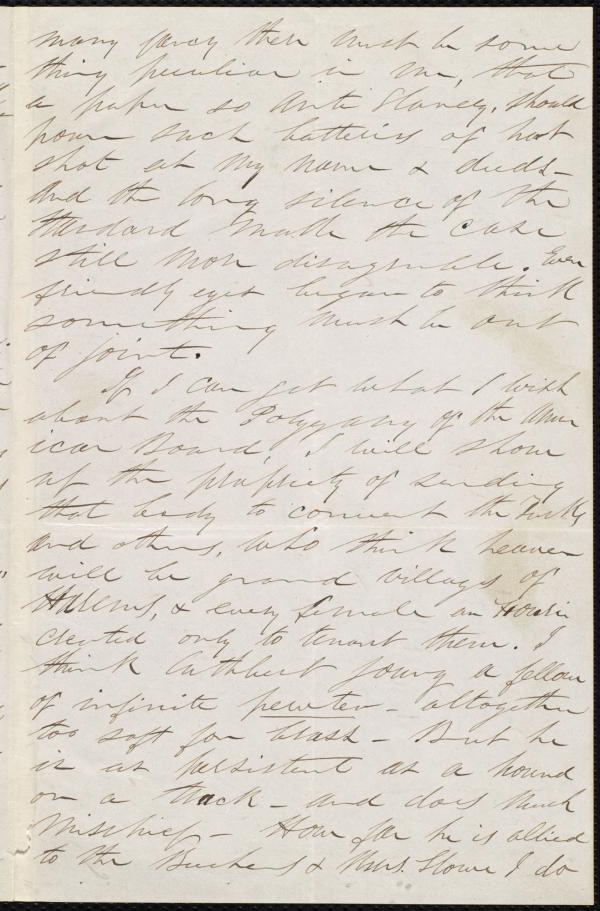 many fancy there must be some
thing peculiar in me, that
a paper so Anti Slavery, should
pour such batteries of hot
shot at my name & deeds –
And the long silence of the
Standard made the case
still more disagreeable. Even
friendly eyes began to think
something must be out
of joint.
If I can get what I wish
about the Polygamy of the Amer
ican Board, I will show
up the propriety of sending
that body to convert the Turks
and others, who think heaven
will be grand villages of
Harems, & every female an Houri
created only to tenant them. I
think Cuthbert Young a fellow
of infinite pewter – altogether
too soft for brass – But he
is as persistent as a hound
on a track – and does much
mischief – How far he is allied
to the Beechers & Mrs. Stowe I do